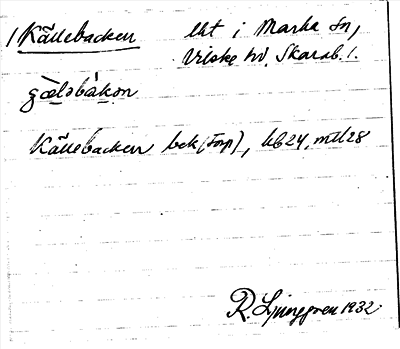 1 Källebacken lht i Marka sn,
Vilske hd. Skarab. l.
gæ̀lsbàkon
Källebacken bck (torp), hb 24, mtl 28
R. Ljunggren 1932